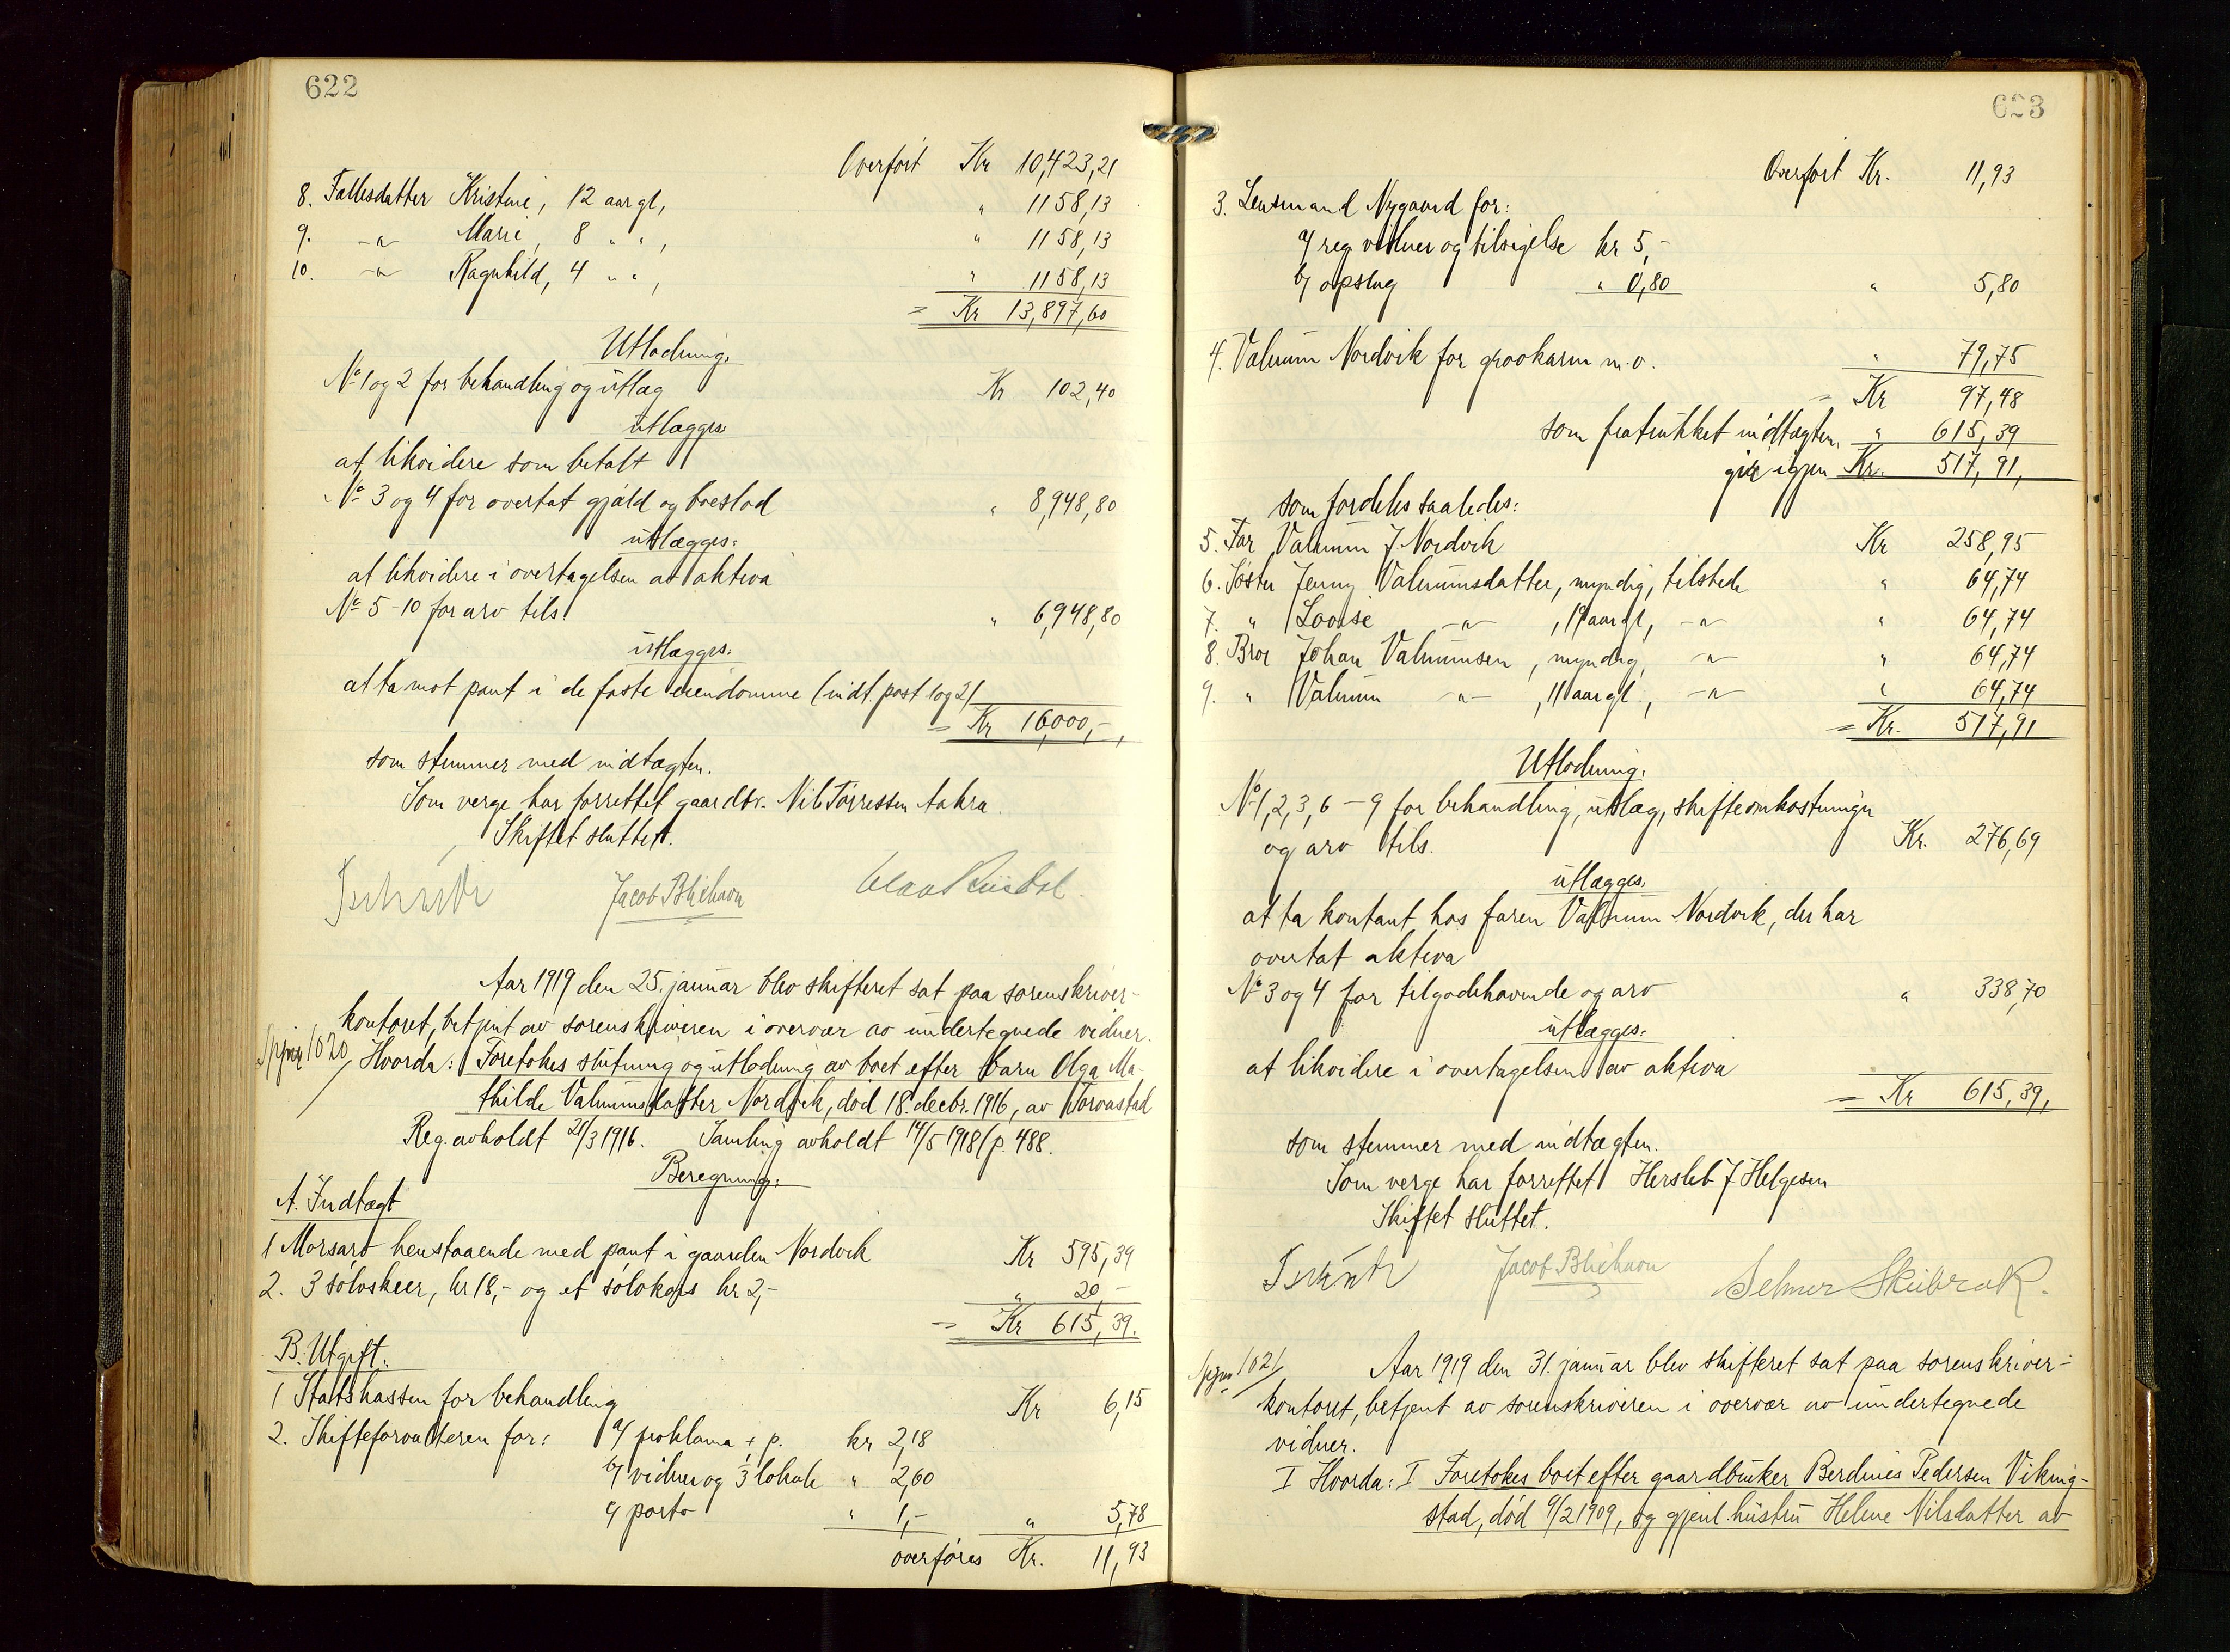 622
Overført Kr 10,423,21
8. Fællesdatter Kristine, 12 aar gl, " 1158,13
9. -"- Marie, 8 " ", " 1158,13
10. -"- Ragnhild, 4 " ", " 1158,13
= Kr 13,897,60
Utlodning.
No 1 og 2 for behandling og utlæg Kr 102,40
utlægges:
at likvidere som betalt
No 3 og 4 for overtat gjæld og boeslod " 8,948,80
utlægges:
at likvidere i overtagelsen av aktiva
No 5-10 for arv tils. " 6,948,80
utlægges:
at ta mot pant i de faste eiendomme (indt. post 1 og 2)
= Kr 16,000,-
som stemmer med indtægten.
Som verge har forrettet gaardbr. Nils Tørressen Aakra.
Skiftet sluttet.
Jacob Blikhavn
Aar 1919 den 25. januar blev skifteret sat paa sorenskriver-
kontoret, betjent av sorenskriveren i overvær av undertegnede vidner.
1020 Hvorda: Foretokes slutning og utlodning av boet efter barn Olga Ma-
thilde Valnumsdatter Nordvik, død 18. decbr. 1916, av Torvastad
Reg. avholdt 21/3 1916. Samling avholdt 14/5 1918 (p. 488.
Beregning:
A. Indtægt
1 Morsarv henstaaende med pant i gaarden Nordvik Kr 595,39
2. 3 sølvskeer, kr 18,- og et sølvkors kr 2,- " 20,-
= Kr 615,39.
B. Utgift:
1 Statskassen for behandling Kr 6,15
2. Skifteforvalteren for: a/ proklama + p. kr 2,18
b/ vidner og 3 lokale " 2,60
c/ porto " 1,- " 5,78
overføres Kr. 11,93
623
Overført Kr. 11,93
3. Lensmand Nygaard for:
a/ reg. vidner og tilsigelse kr 5,-
b/ opslag " 0,80 " 5,80
4. Valnum Nordvik for gravkarm m.v. " 79,75
= Kr 97,48
som fratrukket indtægten " 615,39
gir igjen Kr. 517,91,
som fordeles saaledes:
5. Far Valnum J. Nordvik Kr 258,95
6. Søster Jenny Valnumsdatter, myndig, tilstede " 64,74
7. " Lovise -"- , 19 aar gl, -"- " 64,74
8. Bror Johan Valnumsen, myndig, -"- " 64,74
9. " Valnum -"- , 11 aar gl., -"- " 64,74
= Kr. 517,91
Utlodning.
No 1, 2, 3, 6-9 for behandling, utlæg, skifteomkostninger
og arv tils. Kr. 276,69
utlægges:
at ta kontant hos faren Valnum Nordvik, der har
overtat aktiva
No 3 og 4 for tilgodehavende og arv " 338,70
utlægges:
at likvidere i overtagelsen av aktiva
= Kr 615,39,
som stemmer med indtægten.
Som verge har forrettet Hersleb J Helgesen
Skiftet sluttet.
Jacob Blikhavn Selmer Skeibrok.
1021 Aar 1919 den 31. januar blev skifteret sat paa sorenskriver-
kontoret, betjent av sorenskriveren i overvær av undertegnede
vidner.
I Hvorda: I Foretokes boet efter gaardbruker Berdines Pedersen Viking-
stad, død 9/2 1909, og gjenl. hustru Helene Nilsdatter av